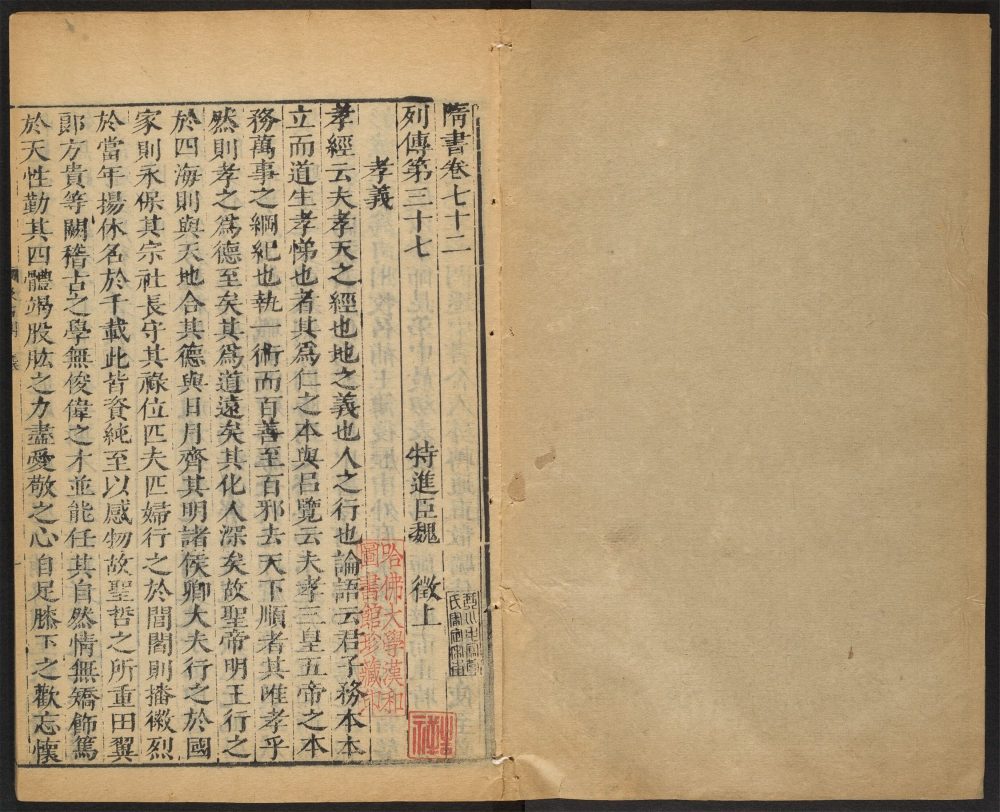 隋書卷七十二
列傳第三十七
特進臣魏 徵上
孝義
孝經云夫孝天之經也地之義也人之行也論語云君子務本本
立而道生孝悌也者其爲仁之本與呂覽云夫孝三皇五帝之本
務萬事之綱紀也執一術而百善至百邪去天下順者其唯孝乎
然則孝之爲德至矣其爲道遠矣其化人深矣故聖帝明王行之
於四海則與天地合其德與日月齊其明諸侯卿大夫行之於國
家則永保其宗社長守其祿位匹夫匹婦行之於閭閻則播徽烈
於當年揚休名於千載此皆資純至以感物故聖哲之所重田翼
郎方貴等闕稽古之學無俊偉之才並能任其自然情無矯飾篤
於天性勤其四體竭股肱之力盡愛敬之心自足膝下之歡忘懷
哈佛大學漢和
圖書館珍藏印